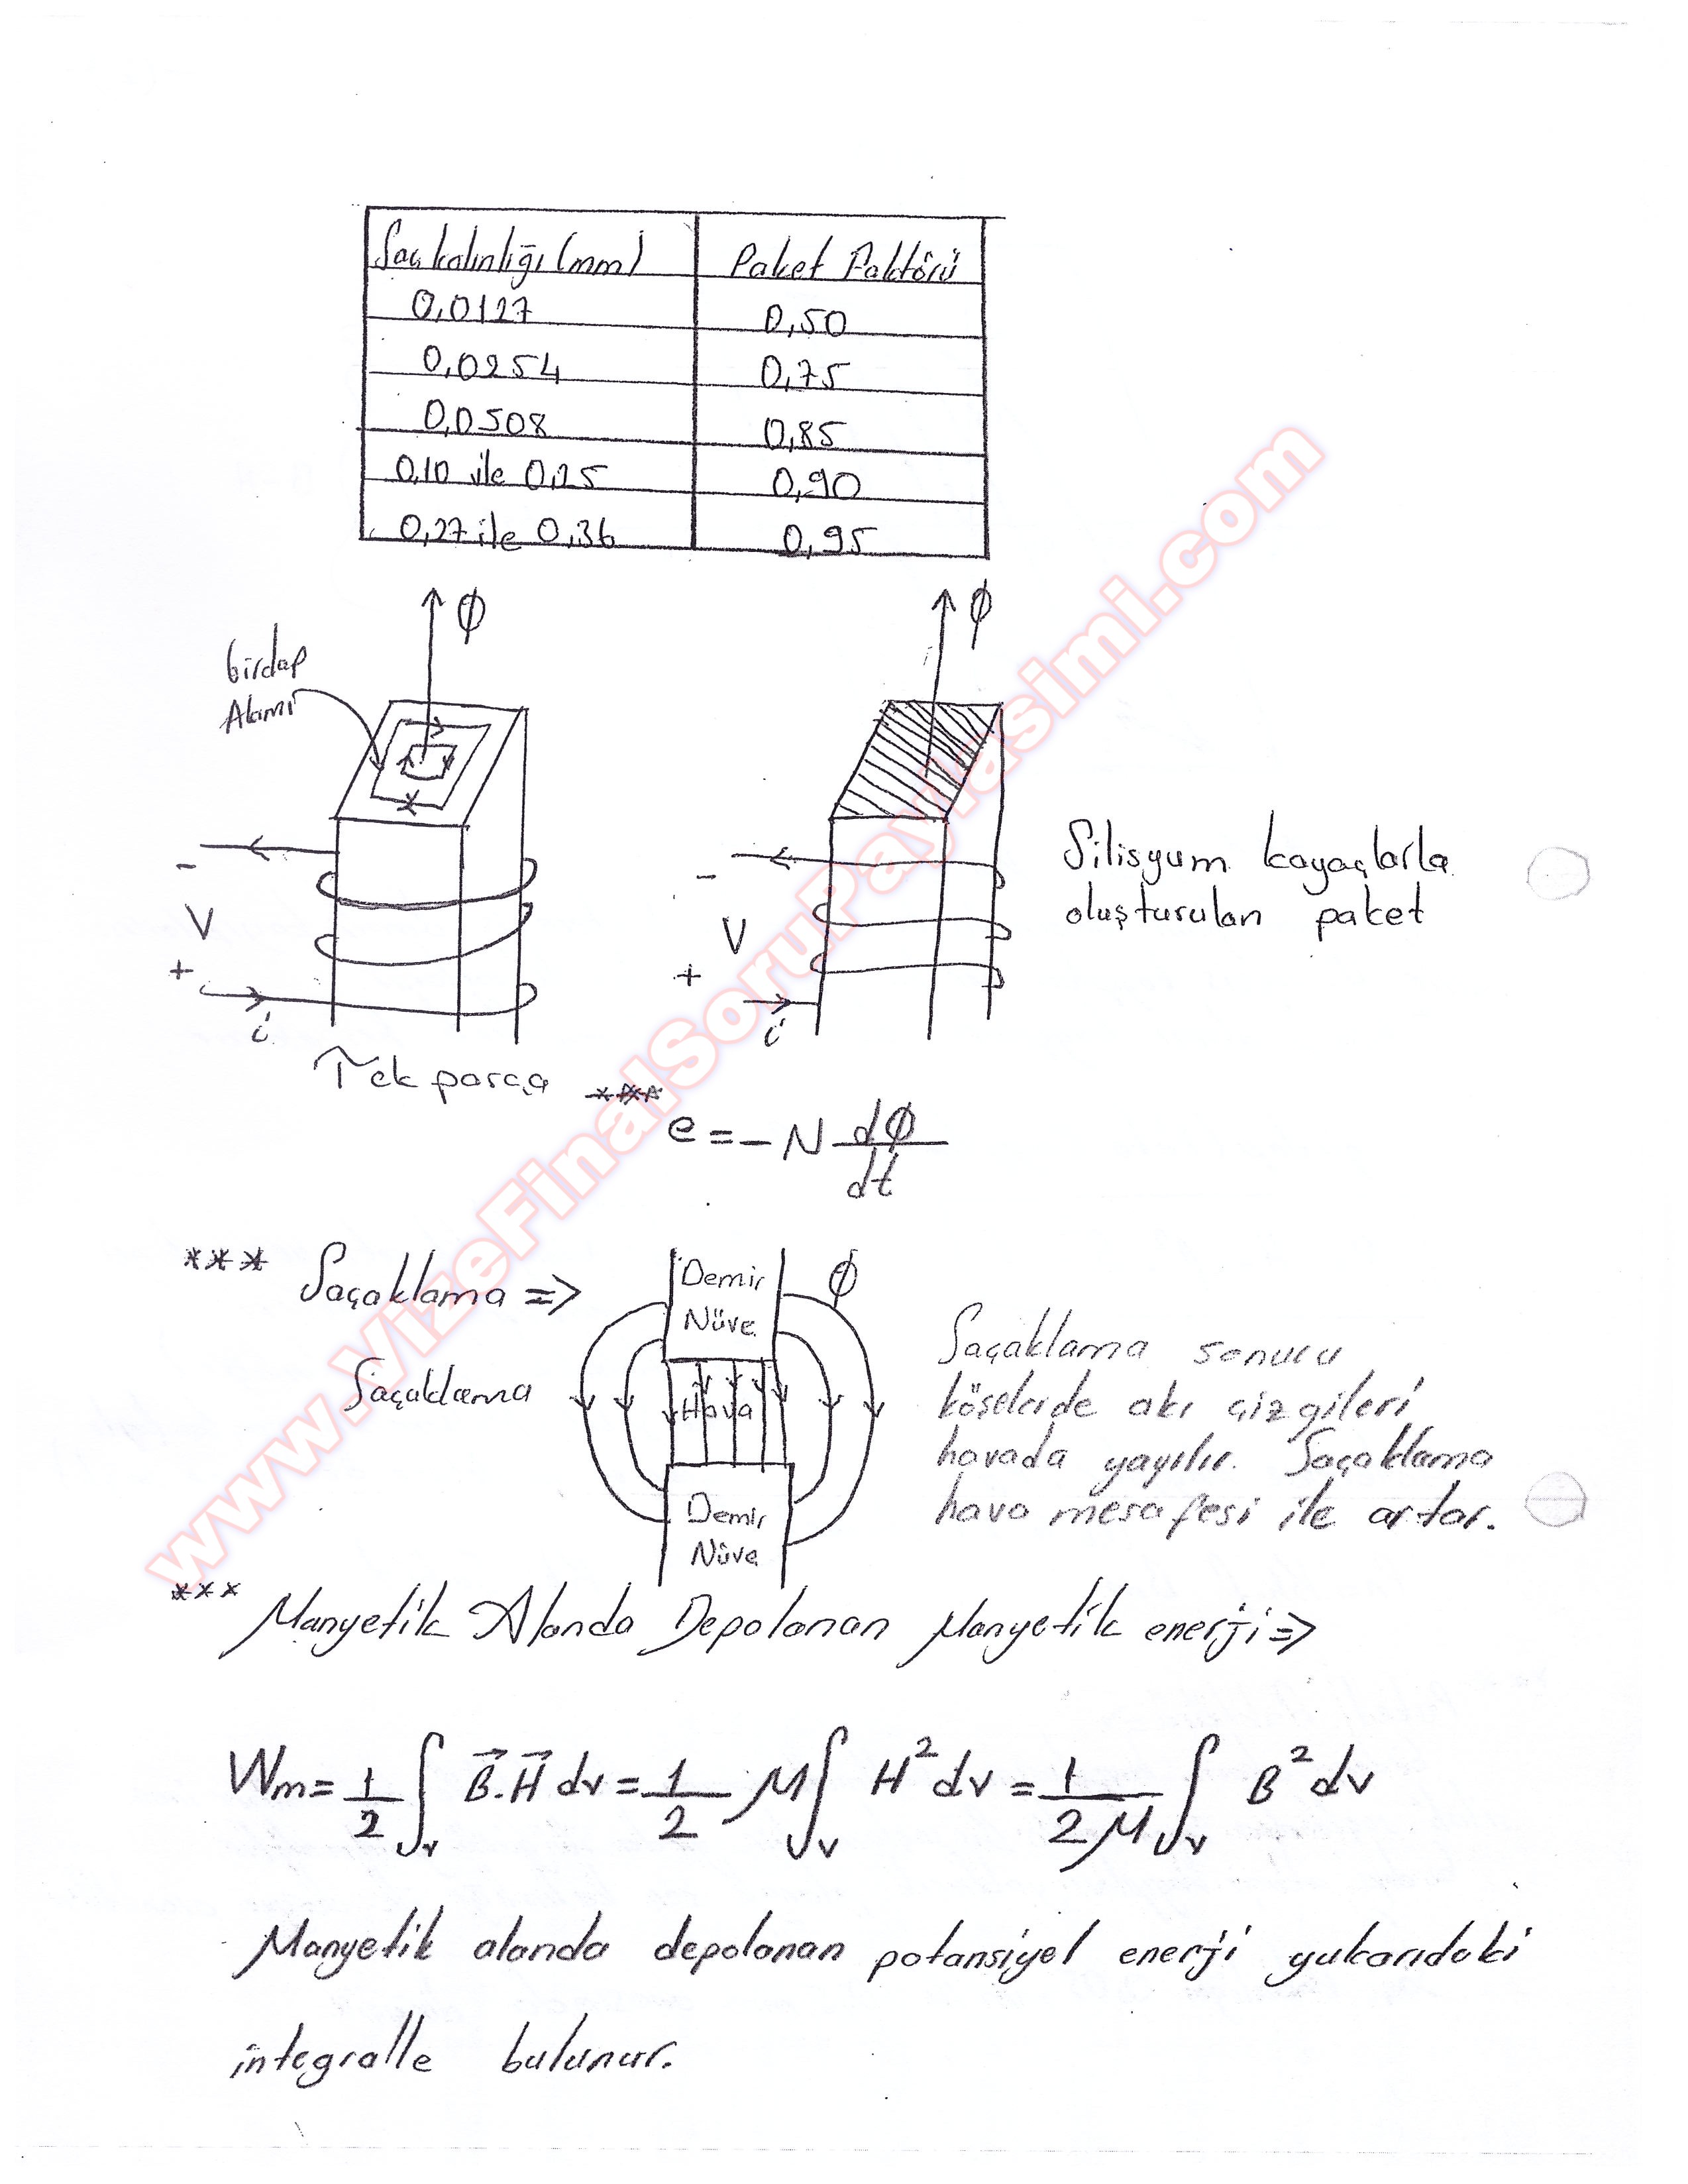 Saç kalınlığı (mm) Paket Faktörü
0,0127 0,50
0,0254 0,75
0,0508 0,85
0,10 ile 0,25 0,90
0,27 ile 0,36 0,95
Φ Φ
Girdap
Akımı
- -
V V
+ +
i i
Silisyum kayaçlarla
oluşturulan paket
Tek parça
*** e = - N dΦ/dt
*** Saçaklama =>
Saçaklama
Demir
Nüve
Φ
Hava
Demir
Nüve
Saçaklama sonucu
köşelerde akı çizgileri
havada yayılır. Saçaklama
hava mesafesi ile artar.
*** Manyetik Alanda Depolanan Manyetik enerji =>
Wm = 1/2 ∫v B⃗.H⃗ dv = 1/2 μ ∫v H² dv = 1/2μ ∫v B² dv
Manyetik alanda depolanan potansiyel enerji yukarıdaki
integralle bulunur.
www.VizeFinalSoruPaylasimi.com